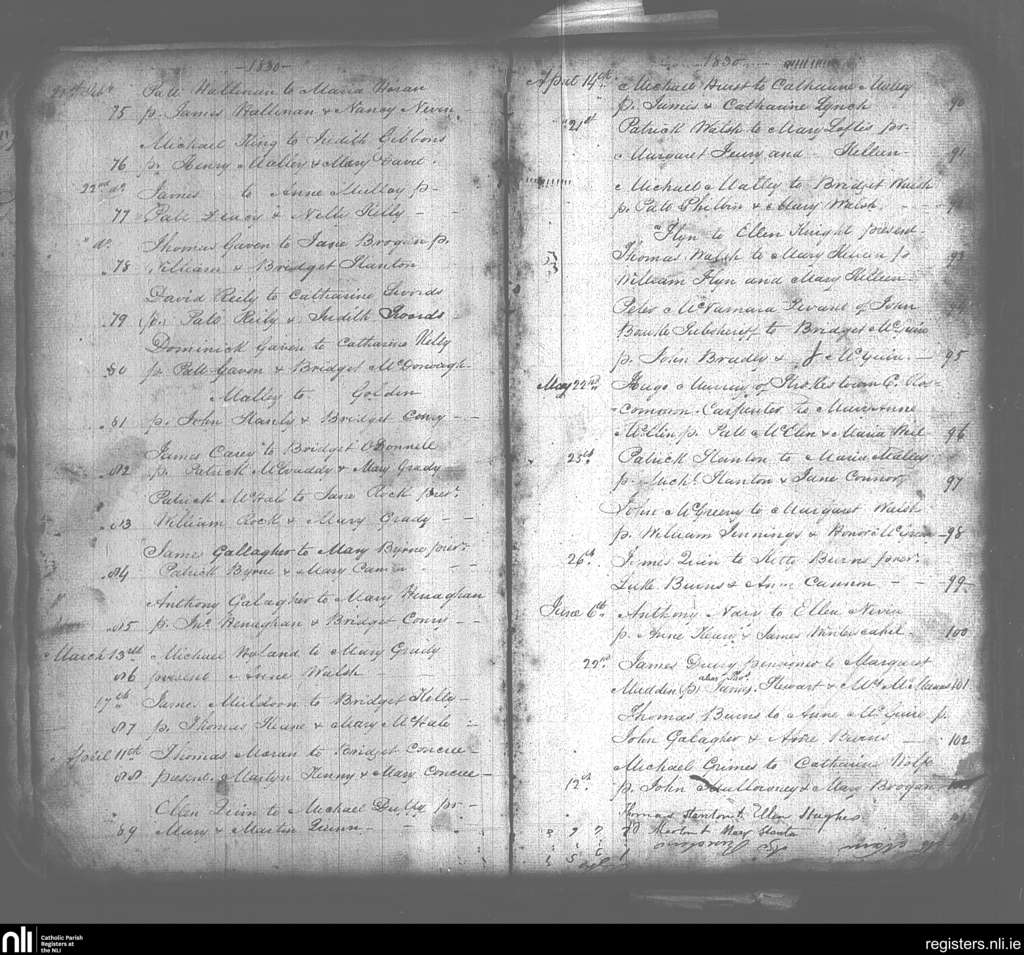 -1830-
Patt Hallinan to Maria Horan
75 p. James Hallinan & Nancy Nevin
Michael King to Judith Gibbons
76 p. Henry Malley & Mary
22nd do James to Anne Mulloy p-
77 Patt & Nelly Kelly - -
" do Thomas Gaven to Jane Brogan p.
78 William & Bridget Stanton
David Reily to Catharine Swords
79 (p.) Patt Reily & Judith Swords -
Dominick Gaven to Catharine Kelly
80 p. Patt Gaven & Bridget McDonough
Malley to Golden
81 p. John Stanly & Bridget Conry - -
James Carey to Bridget O'Donnell
82 p. Patrick McVaddy & Mary Grady
Patrick McHale to Jane Rock pres.
83 William Rock & Mary Grady - -
James Gallagher to Mary Byrne pres.
84 Patrick Byrne & Mary - - -
Anthony Galagher to Mary Henaghan
85 p. Jno. Henaghan & Bridget Conry - -
March 13th Michael Hyland to Mary Grady
86 present Anne Walsh -
17th James Muldorn to Bridget Kelly -
87 p. Thomas Keane & Mary McHale -
April 11th Thomas Moran to Bridget Concree -
88 present Martin Kenny & Mary Concree -
Ellen Quin to Michael Duffy pr-
89 Mary & Martin Quinn -
1830
April 14th Michael Hurst to Catharine Molloy
p. James & Catharine Lynch 90
"21st Patrick Walsh to Mary Loftes pr.
Margaret and Killeen 91
Michael Malley to Bridget Walsh
p. Patt Philbin & Mary Walsh -
Flyn to Ellen Knight present
Thomas Walsh to Mary p 93
William Flyn and Mary Killeen
Peter McNamara Servant of John
Bourke Subsheriff to Bridget McGuire
p. John Bradly & J McGuin - 95
May 22nd Hugo Murray of Strokestown C. Ros-
-common Carpenter to Mary Anne
p. Patt & Maria 96
25th Patrick Stanton to Maria Malley
p. Michl. Stanton & Jane Connor 97
John McGreevy to Margaret Walsh
p. William Jennings & Honor - 98
26th James Quin to Kitty Burns pres.
Luke Burns & Anne Cannon - - 99
June 6th Anthony Nary to Ellen Nevin
p. Anne & James - 100
22nd James pensioner to Margaret
Madden p. James Stewart & Mrs. 101
Thomas Burns to Anne McGuire p.
John Galagher & Burns - 102
Michael Grimes to Catharine Wolfe
12th p. John & Mary Brogan
Thomas Stanton & Ellen Hughes
Martin & Mary
nli
Catholic Parish
Registers at
the NLI
registers.nli.ie